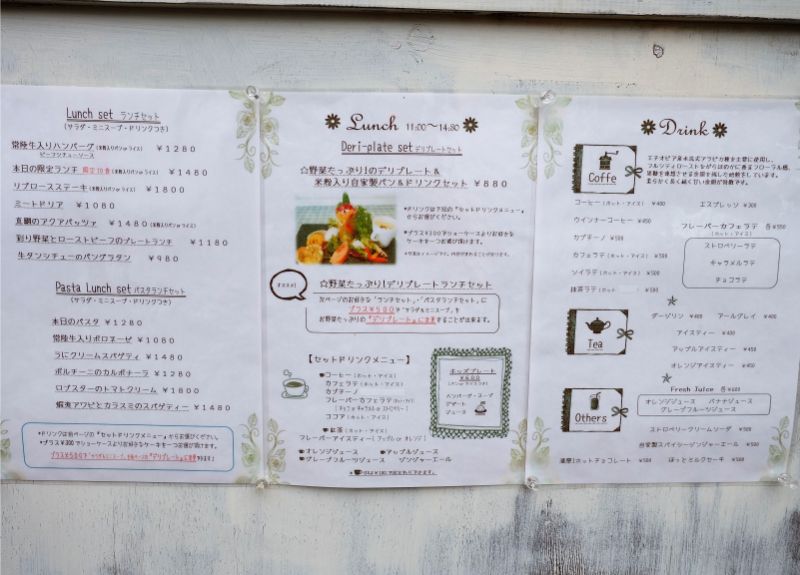 Lunch set ランチセット
(サラダ・ミニスープ・ドリンクつき)
常陸牛入りハンバーグ(米粉入りパンorライス) ¥1280
ビーフシチューソース
本日の限定ランチ 限定10食(米粉入りパンorライス) ¥1480
リブロースステーキ(米粉入りパンorライス) ¥1800
ミートドリア ¥1080
真鯛のアクアパッツァ ¥1480(米粉入りパンorライス)
彩り野菜とローストビーフのプレートランチ ¥1180
牛タンシチューのパングラタン ¥980
Pasta Lunch set パスタランチセット
(サラダ・ミニスープ・ドリンクつき)
本日のパスタ ¥1280
常陸牛入りボロネーゼ ¥1080
うにクリームスパゲティ ¥1480
ポルチーニのカルボナーラ ¥1280
ロブスターのトマトクリーム ¥1800
蝦夷アワビとカラスミのスパゲティー ¥1480
*ドリンクは次ページの『セットドリンクメニュー』からお選び下さい。
*プラス¥300でショーケースよりお好きなケーキを一つお選び頂けます。
Lunch 11:00~14:30
Deri-plate set デリプレートセット
☆野菜たっぷり!のデリプレート&
米粉入り自家製パン&ドリンクセット ¥880
*ドリンクは下記の『セットドリンクメニュー』
からお選びください。
*プラス¥300でショーケースよりお好きな
ケーキを一つお選び頂けます。
オススメ!
☆野菜たっぷり!デリプレートランチセット
次ページのお好きな「ランチセット」・「パスタランチセット」に
プラス¥500で「サラダ&ミニスープ」を
お野菜たっぷりの『デリプレート』に変更することが出来ます。
【セットドリンクメニュー】
コーヒー(ホット・アイス)
カフェラテ(ホット・アイス)
カプチーノ
フレーバーカフェラテ(ホット・アイス)
(チョコ or キャラメル or ストロベリー)
ココア(ホット・アイス)
紅茶(ホット・アイス)
フレーバーアイスティー(アップル or オレンジ)
オレンジジュース アップルジュース
グレープフルーツジュース ジンジャーエール
キッズプレート
ハンバーグ・スープ
デザート
ジュース
Drink
Coffe
コーヒー(ホット・アイス) ¥400
エスプレッソ ¥300
ウインナーコーヒー ¥450
カプチーノ ¥500
フレーバーカフェラテ 各¥550
(ホット・アイス)
カフェラテ(ホット・アイス) ¥500
ストロベリーラテ
キャラメルラテ
チョコラテ
ソイラテ(ホット・アイス) ¥500
抹茶ラテ(ホット・アイス) ¥500
Tea
ダージリン ¥400 アールグレイ ¥400
アイスティー ¥400
アップルアイスティー ¥450
オレンジアイスティー ¥450
Others
Fresh Juice 各¥600
オレンジジュース バナナジュース
グレープフルーツジュース
ストロベリークリームソーダ ¥500
自家製スパイシージンジャーエール ¥500
濃厚!ホットチョコレート ¥500 ほっとミルクセーキ ¥500